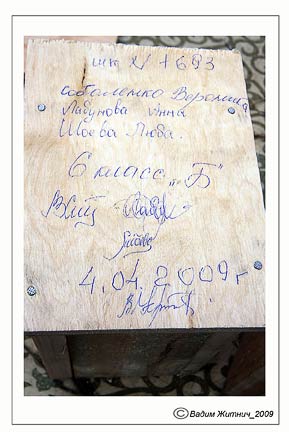 шк № 1693
соболенко Вероника
Лабунова Анна
Шоева Люба.
6 класс „Б"
4.04.2009г
© Вадим Житнич_2009